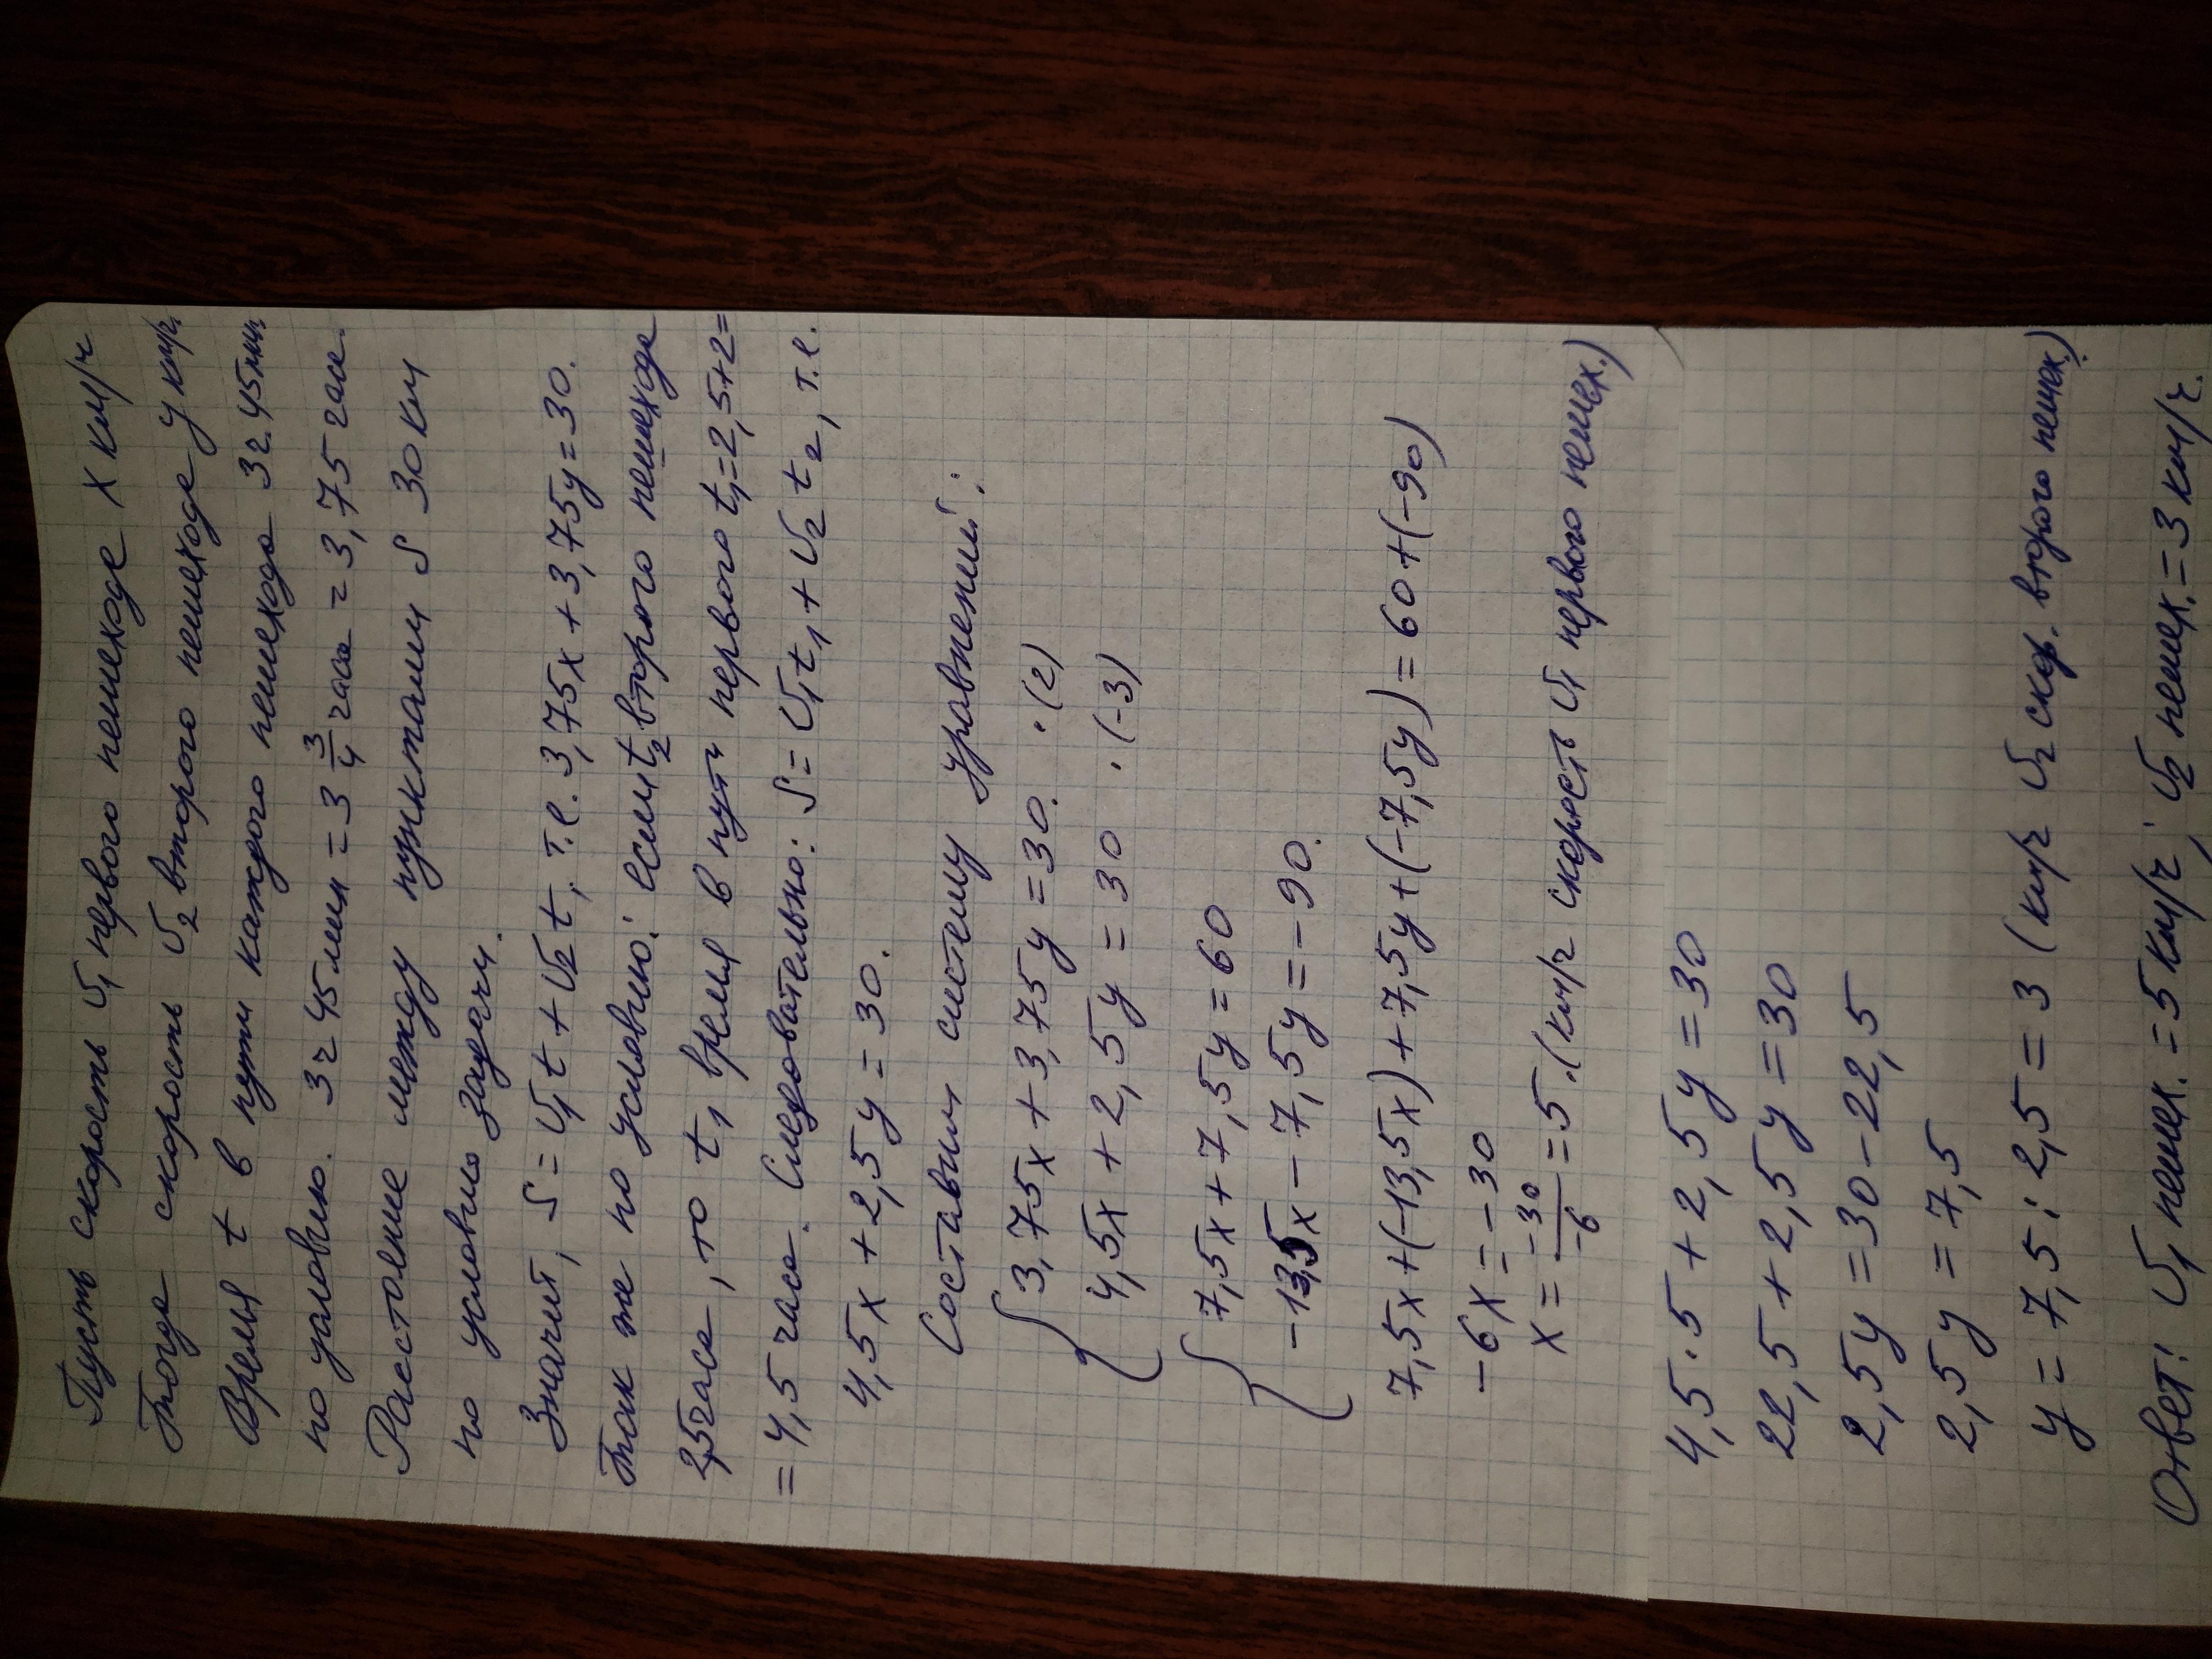 Пусть скорость V₁ первого пешехода x км/ч
Тогда скорость V₂ второго пешехода y км/ч.
Время t в пути каждого пешехода 3ч.45мин
по условию. 3ч 45мин = 3 3/4 часа = 3,75 часа.
Расстояние между пунктами S 30 км
по условию задачи.
Значит, S = V₁t + V₂t, т.е. 3,75x + 3,75y = 30.
Так же по условию: если t₂ второго пешехода
2,5часа, то t₁ время в пути первого t₁=2,5+2=
= 4,5 часа. Следовательно: S = V₁t₁ + V₂t₂, т.е.
4,5x + 2,5y = 30.
Составим систему уравнений:
{ 3,75x + 3,75y = 30. ·(2)
4,5x + 2,5y = 30 ·(-3)
{ 7,5x + 7,5y = 60
-13,5x - 7,5y = -90.
7,5x+(-13,5x)+7,5y+(-7,5y) = 60+(-90)
-6x = -30
x = -30/-6 = 5.(км/ч скорость V₁ первого пешех.)
4,5·5 + 2,5y = 30
22,5 + 2,5y = 30
2,5y = 30 - 22,5
2,5y = 7,5
y = 7,5 : 2,5 = 3 (км/ч V₂ скор. второго пешех.)
Ответ: V₁ пешех. = 5 км/ч; V₂ пешех. = 3 км/ч.